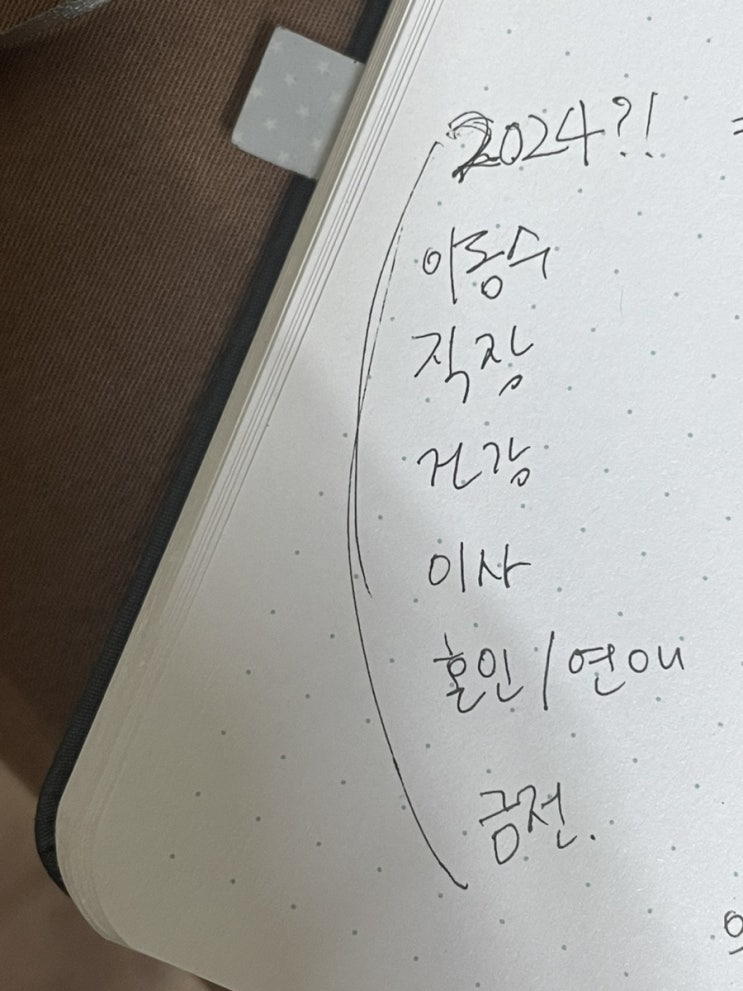 2024?!
이동수
직장
건강
이사
혼인/연애
금전.